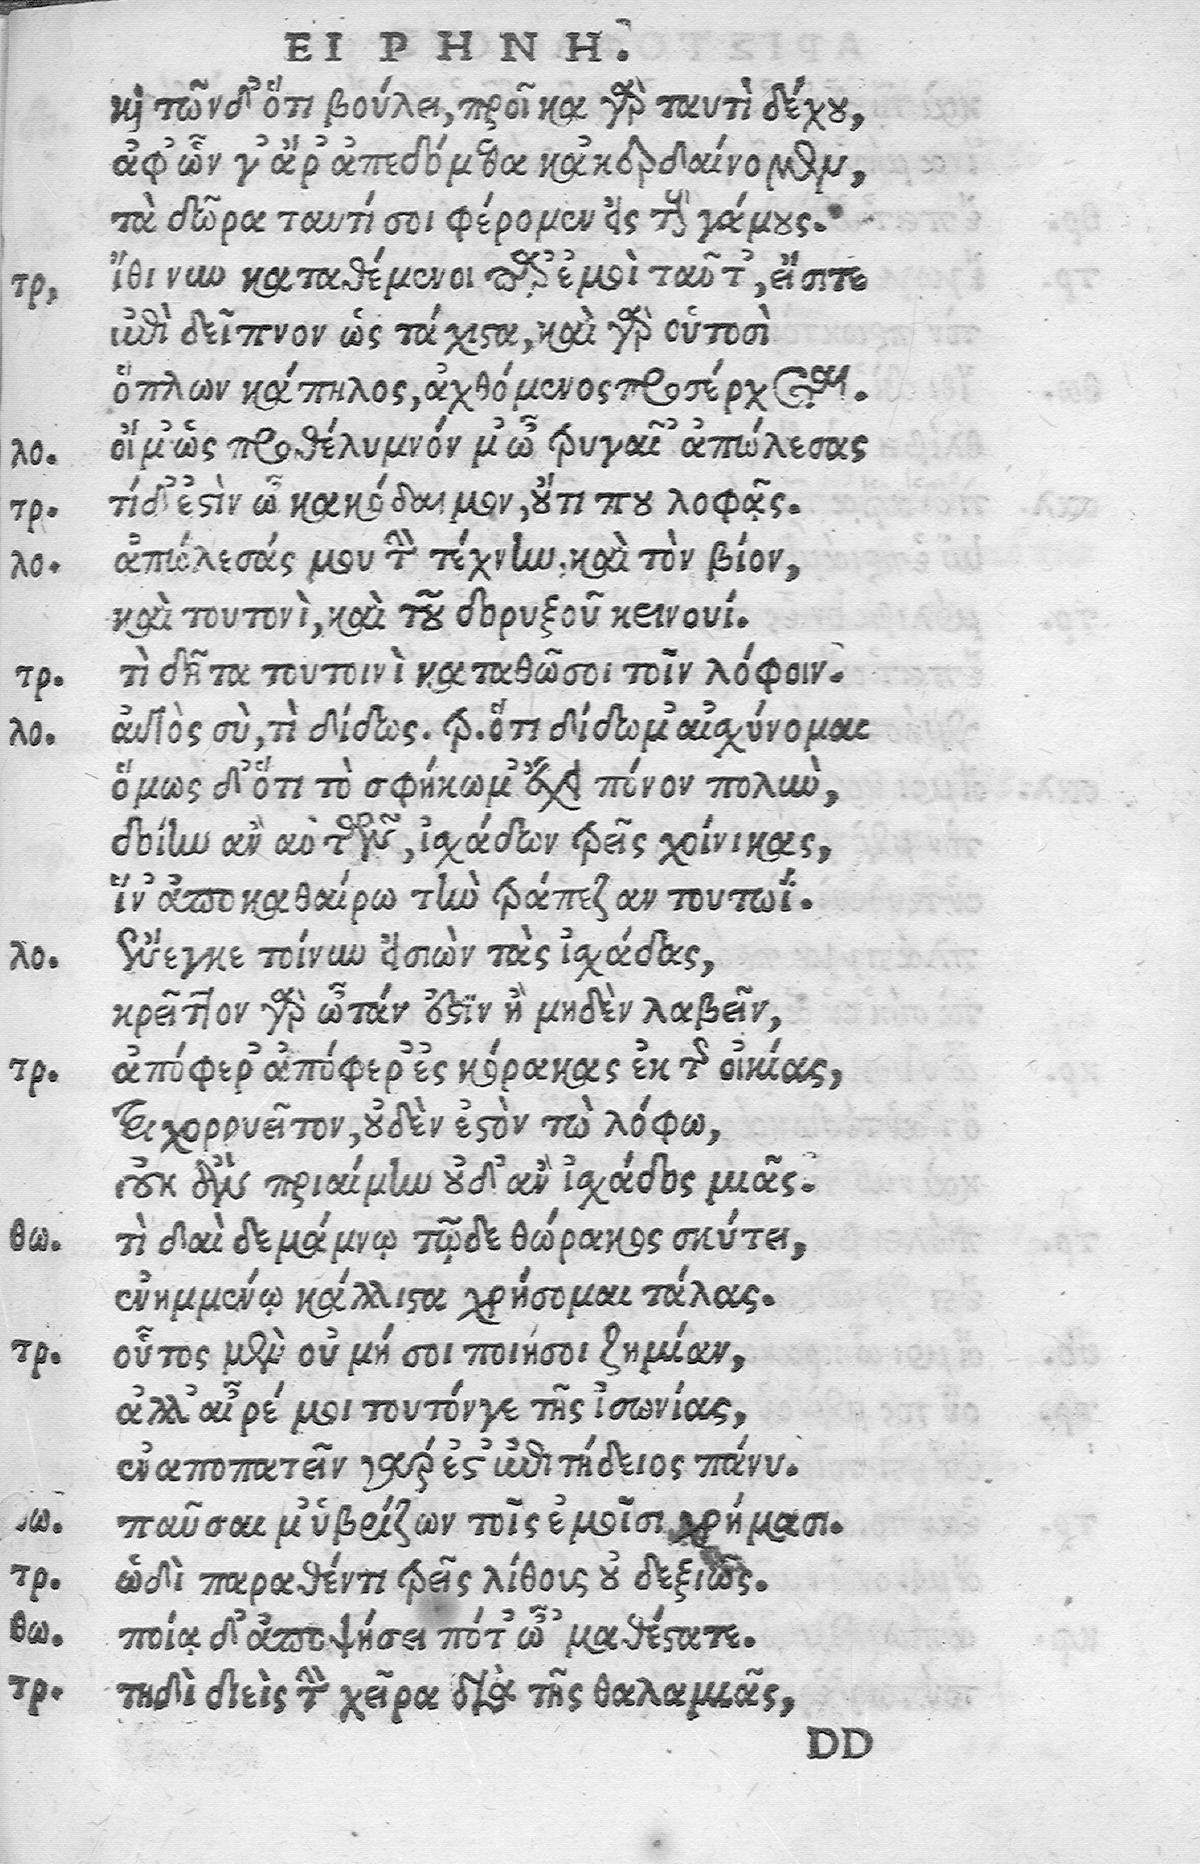 ΕΙΡΗΝΗ.
καὶ τῶνδ' ὅτι βούλει, προῖκα γὰρ ταυτὶ δέχου,
ἀφ' ὧν γ' ἄρ' ἀπεδόμεθα κἀκερδαίνομεν,
τὰ δῶρα ταυτί σοι φέρομεν εἰς τοὺς γάμους.
τρ. ἴθι νυν καταθέμενοι παρ' ἐμοὶ ταῦτ', εἴσιτε
ἐπὶ δεῖπνον ὡς τάχιστα, καὶ γὰρ οὑτοσὶ
ὅπλων κάπηλος, ἀχθόμενος προσέρχεται.
λο. οἴμ' ὡς προθέλυμνόν μ' ὦ τρυγαῖ' ἀπώλεσας
τρ. τί δ' ἐστὶν ὦ κακόδαιμον, οὔτι που λοφᾷς.
λο. ἀπώλεσάς μου τὴν τέχνην, καὶ τὸν βίον,
καὶ τουτονὶ, καὶ τοῦ δορυξοῦ κεινουί.
τρ. τὶ δῆτα τουτοινὶ καταθῶ σοι τοῖν λόφοιν.
λο. αὐτὸς σὺ, τὶ δίδως. τρ. ὅτι δίδωμ' αἰσχύνομαι
ὅμως δ' ὅτι τὸ σφήκωμ' ἔχει πόνον πολὺν,
δοίην ἂν αὐτοῖν, ἰσχάδων τρεῖς χοίνικας,
ἵν' ἀποκαθαίρω τὴν τράπεζαν τουτωΐ.
λο. ἔνεγκε τοίνυν εἰσιὼν τὰς ἰσχάδας,
κρεῖττον γὰρ ὦ τάν ἐστὶν ἢ μηδὲν λαβεῖν,
τρ. ἀπόφερ' ἀπόφερ' ἐς κόρακας ἐκ τῆς οἰκίας,
τριχορρυεῖτον, οὐδὲν ἐστὸν τὼ λόφω,
οὐκ ἂν πριαίμην οὐδ' ἂν ἰσχάδος μιᾶς.
θω. τὶ δαὶ δεμάμνῳ τῷδε θώρακος σκύτει,
ἐνημμένῳ κάλλιστα χρήσομαι τάλας.
τρ. οὗτος μὲν οὐ μή σοι ποιήσοι ζημίαν,
ἀλλ' αἶρέ μοι τουτόνγε τῆς ἰσωνίας,
ἐναποπατεῖν γάρ ἐστ' ἐπιτήδειος πάνυ.
θω. παῦσαι μ' ὑβρίζων τοῖς ἐμοῖσι χρήμασι.
τρ. ὡδὶ παραθέντι τρεῖς λίθους οὐ δεξιῶς.
θω. ποίᾳ δ' ἀποψήσει πότ' ὦ 'μαθέστατε.
τρ. τηδὶ διεὶς τὴν χεῖρα διὰ τῆς θαλαμιᾶς,
DD